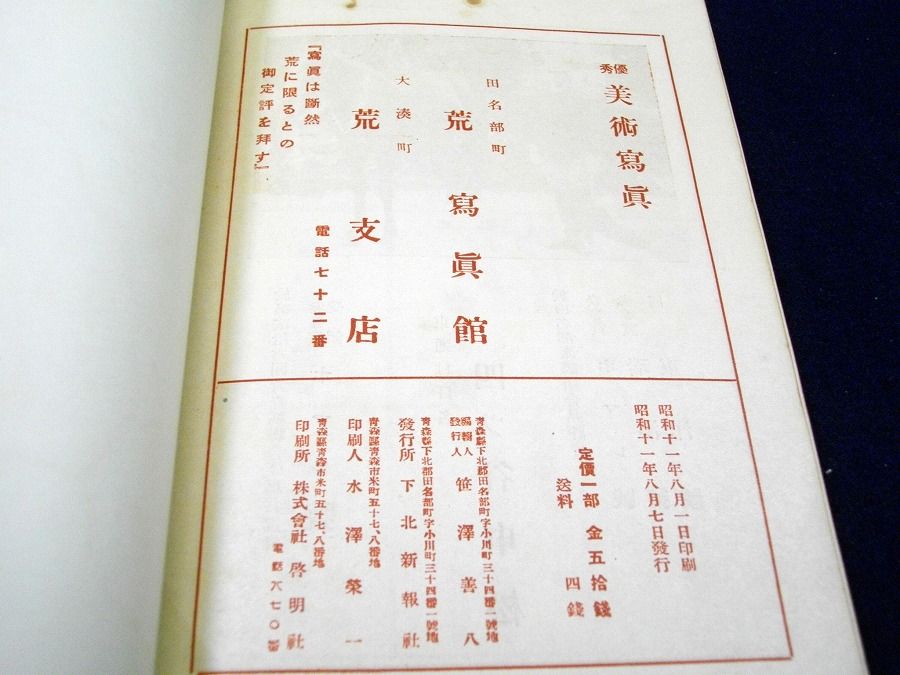 優秀
美術寫眞
田名部町
荒寫眞館
大湊町
荒支店
電話七十二番
「寫眞は斷然
荒に限るとの
御定評を拜す」
昭和十一年八月一日印刷
昭和十一年八月七日發行
定價一部 金五拾錢
送料 四錢
青森縣下北郡田名部町字小川町三十四番一號地
編輯人
發行人
笹澤善八
青森縣下北郡田名部町字小川町三十四番一號地
發行所 下北新報社
青森縣青森市米町五十七、八番地
印刷人 水澤榮一
青森縣青森市米町五十七、八番地
印刷所 株式會社 啓明社
電話六七〇番